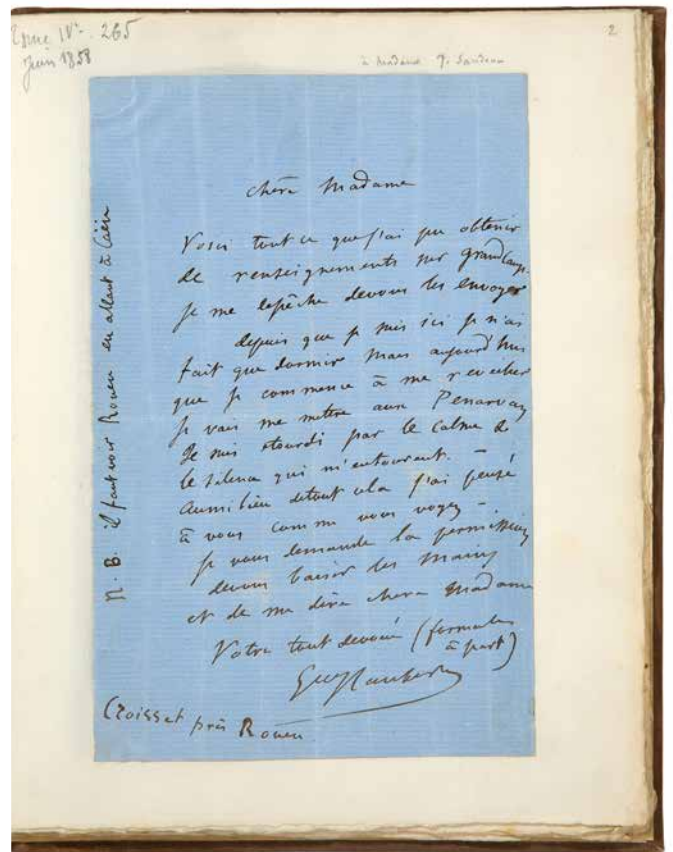 Tome IV. 265
Juin 1858
2
à Madame J. Sandeau
chère Madame
Voici tout ce que j'ai pu obtenir
de renseignements sur grandcamp.
je me depêche devous les envoyer
depuis que je suis ici je n'ai
fait que dormir mais aujourd'hui
que je commence à me reveiller
je vais me mettre aux Penarvan
Je suis étourdi par le calme &
le silence qui m'entourent. –
aumilieu detout cela j'ai pensé
à vous comme vous voyez –
je vous demande la permission
devous baiser les mains
et de me dire chere Madame
Votre tout devoué (formules
à part)
GveFlaubert
Croisset près Rouen
N. B. il faut voir Rouen en allant à Caen